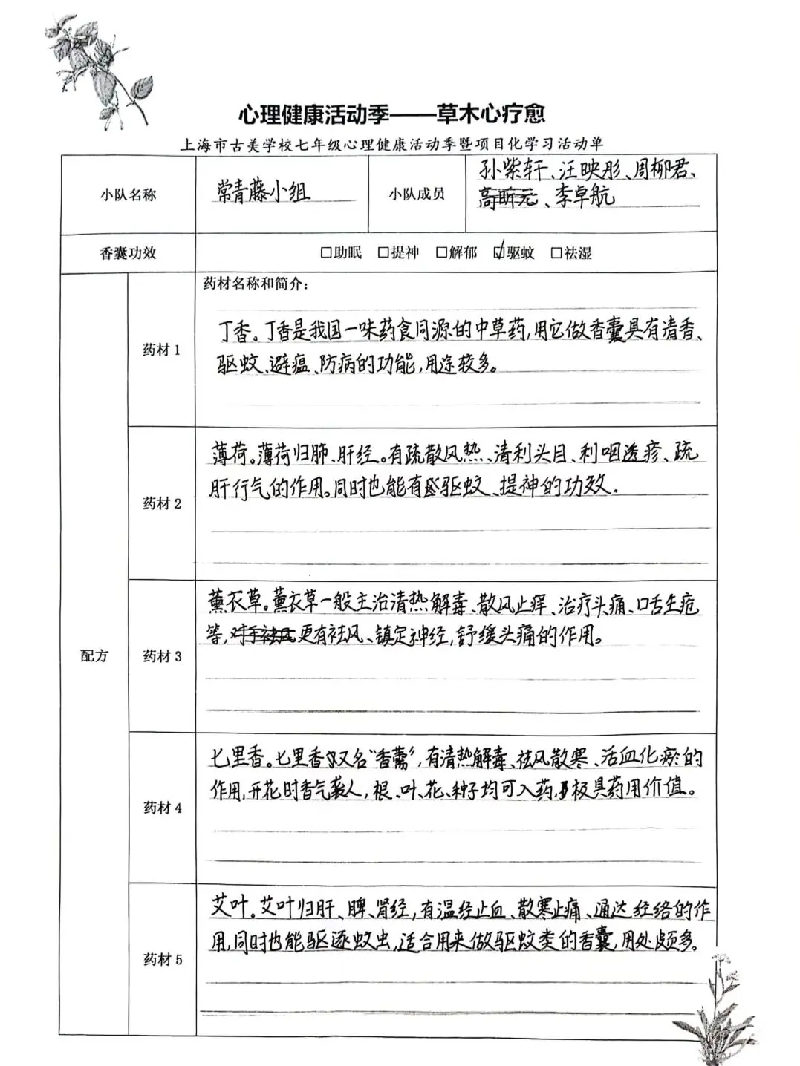 心理健康活动季——草木心疗愈
上海市古美学校七年级心理健康活动季暨项目化学习活动单
小队名称
常青藤小组
小队成员
孙紫轩、汪映彤、周柳君、
高昕元、李卓航
香囊功效
□助眠 □提神 □解郁 ☑驱蚊 □祛湿
配方
药材名称和简介:
药材1
丁香。丁香是我国一味药食同源的中草药,用它做香囊具有清香、
驱蚊、避瘟、防病的功能,用途较多。
药材2
薄荷。薄荷归肺、肝经。有疏散风热、清利头目、利咽透疹、疏
肝行气的作用。同时也能有驱蚊、提神的功效.
药材3
薰衣草。薰衣草一般主治清热解毒、散风止痒、治疗头痛、口舌生疮
等,更有祛风、镇定神经,舒缓头痛的作用。
药材4
七里香。七里香又名"香薷",有清热解毒、祛风散寒、活血化瘀的
作用,开花时香气袭人,根、叶、花、种子均可入药,极具药用价值。
药材5
艾叶。艾叶归肝、脾、肾经,有温经止血、散寒止痛、通达经络的作
用,同时也能驱逐蚊虫,适合用来做驱蚊类的香囊,用处颇多。